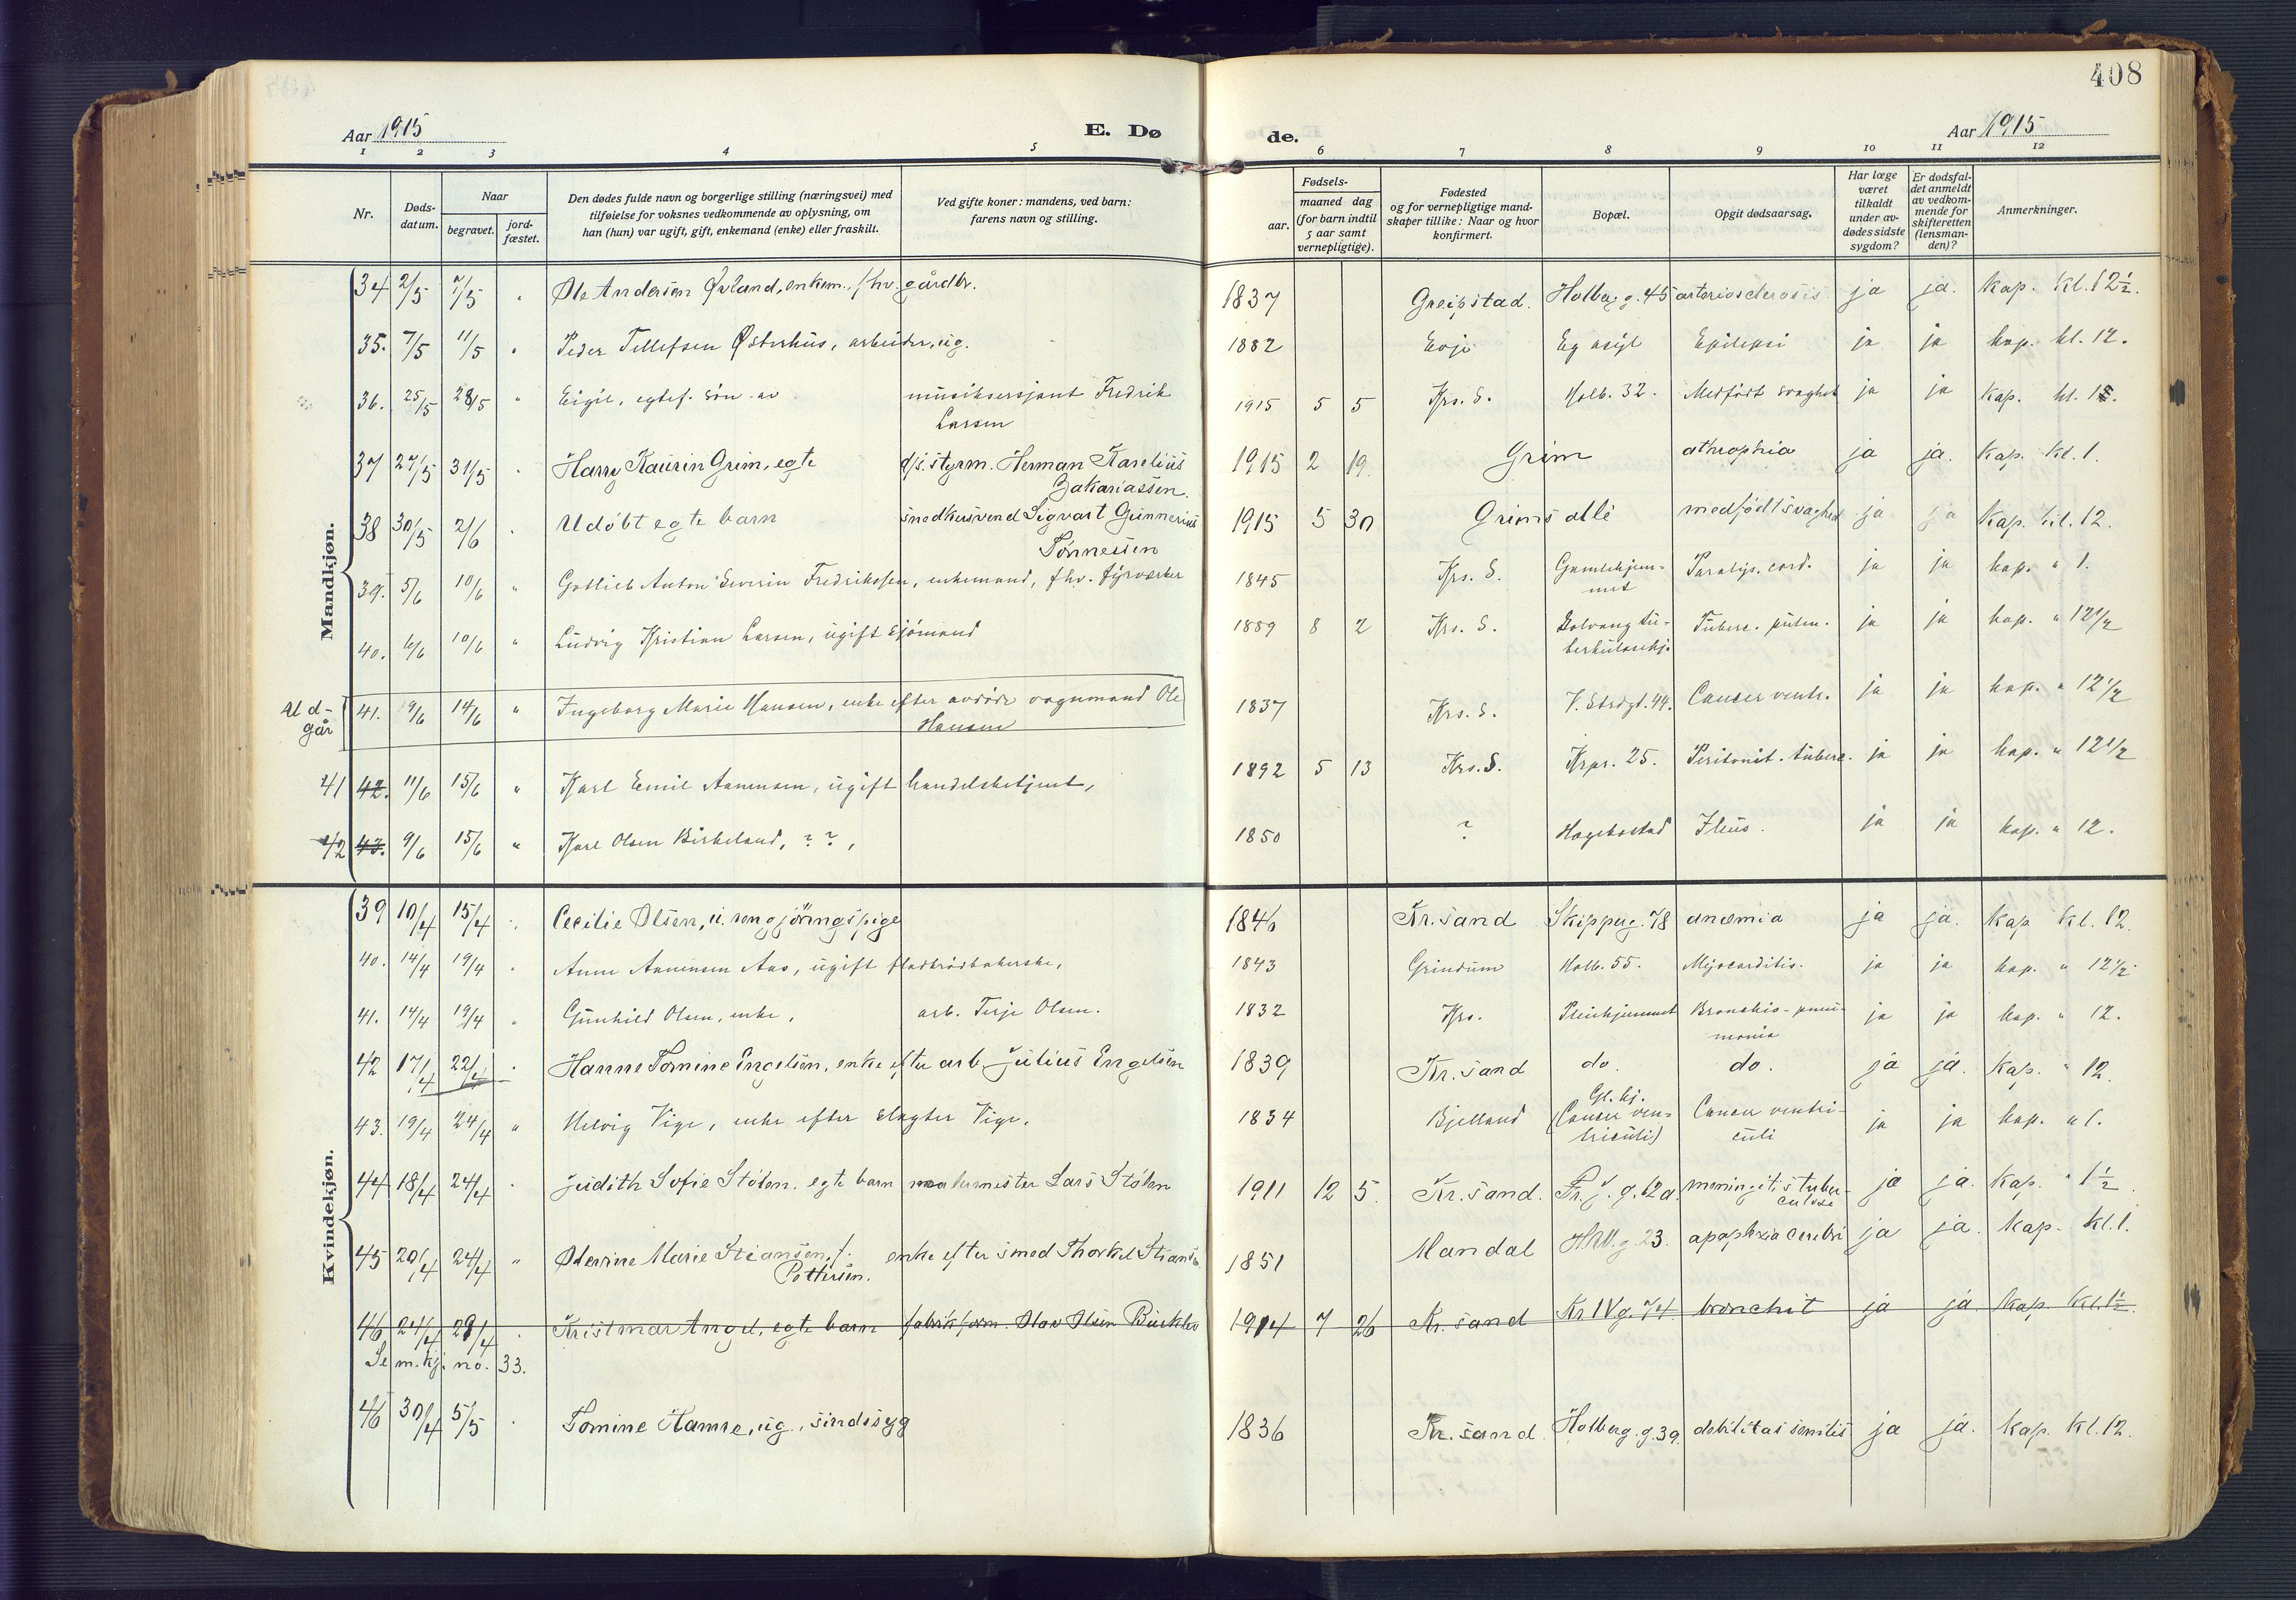 408
Aar 1915 E. Dø de. Aar 1915
1 2 3 4 5 6 7 8 9 10 11 12
Nr. Døds-datum. Naar begravet. jord-fæstet. Den dødes fulde navn og borgerlige stilling (næringsvei) med tilføielse for voksnes vedkommende av oplysning, om han (hun) var ugift, gift, enkemand (enke) eller fraskilt. Ved gifte koner: mandens, ved barn: farens navn og stilling. Fødsels- aar. maaned dag (for barn indtil 5 aar samt vernepligtige). Fødested og for vernepligtige mand-skaper tillike: Naar og hvor konfirmert. Bopæl. Opgit dødsaarsag. Har læge været tilkaldt under av-dødes sidste sygdom? Er dødsfal-det anmeldt av vedkom-mende for skifteretten (lensman-den)? Anmerkninger.
Mandkjøn.
34 2/5 7/5 " Ole Andersen Øvland, enkem., fhv. gårdbr. 1837 Greipstad. Holbg. g. 45 arteriosclerosis ja ja. Kap. Kl. 12½.
35. 7/5 11/5 " Peder Tellefsen Østerhus, arbeider, ug. 1882 Evje Eg asyl Epilepsi ja ja kap. kl. 12.
36. 25/5 28/5 " Eigil, egtef. søn av musiksersjant Fredrik 1915 5 5 Krs. S. Holb. 32. Medfødt svaghet ja ja Kap. kl. 1.
Larsen
37 27/5 31/5 " Harry Kaurin Grim, egte d/s. styrm. Herman Karelius 1915 2 19 Grim athrophia ja ja. Kap. Kl. 1.
Zakariassen.
38 30/5 2/6 " Udøbt egte barn snedkersvend Sigvart Gunnerius 1915 5 30 Grims allé medfødt svaghed ja ja Kap. kl. 12.
Tønnessen
39. 5/6 10/6 " Gottlieb Anton Severin Fredriksen, enkemand, fhv. fyrverker 1845 Krs. S. Gamlehjem- Paralys. cord. ja ja kap. " 1.
met
40. 6/6 10/6 " Ludvig Kristian Larsen, ugift sjømand 1889 8 2 Krs. S. Solvang tu- Tuberc. pulm. ja ja kap. " 12½
berkulosehj.
Ud-
går
41. 9/6 14/6 " Ingeborg Marie Hansen, enke efter avdøde vognmand Ole 1837 Krs. S. V. Strdgt. 44. Cancer ventr. ja ja kap. " 12½
Hansen
41 42. 11/6 15/6 " Karl Emil Aanensen, ugift handelsbetjent, 1892 5 13 Krs. S. Krpr. 25. Peritonit. tuberc. ja ja kap. " 12½
42 43. 9/6 15/6 " Karl Olsen Birkeland, ? ?, 1850 ? Hægebostad Ileus. ja ja kap. " 12.
Kvindekjøn.
39 10/4 15/4 " Cecilie Olsen, u. rengjøringspige 1846 Kr.sand Skipperg. 78 anæmia ja ja. Kap Kl. 12.
40. 14/4 19/4 " Anne Aanensen Aas, ugift fladbrødbakerske, 1843 Grindum Holb. 55. Myocarditis. ja ja kap. " 12½
41. 14/4 19/4 " Gunhild Olsen, enke, arb. Terje Olsen. 1832 Krs. Pleiehjemmet Bronchio-pneu- ja ja kap. " 12.
monia
42 17/4 22/4 " Hanne Tomine Engelsen, enke efter arb Julius Engelsen 1839 Kr.sand do. do. ja ja. Kap. " 12.
Gl. hj.
43. 19/4 24/4 " Helvig Vige, enke efter slagter Vige. 1834 Bjelland (Cancer ven- Cancer ventri- ja ja kap. " 1.
triculi) culi
44 18/4 24/4 " Judith Sofie Stølen. egte barn malermester Lars Stølen 1911 12 5. Kr.sand. Fr. V. g. 62a. meningitis tuber- ja ja. Kap. " 1½
culose
45 20/4 24/4 " Oterine Marie Stiansen, f. enke efter smed Thorkel Stiansen 1851 Mandal H.IV.g. 23. apoplexia cerebri ja ja. Kap. Kl. 1.
Pettersen.
46 24/4 29/4 " Kristmar Angel, egte barn fabrikform. Olav Olsen 1914 7 26 Kr.sand Kr. IV g. 74. bronchit ja ja. Kap. Kl. 1½.
Se m.kj. no. 33.
46 30/4 5/5 " Tomine Hamre, ug., sindssyg 1836 Kr.sand. Holberg. g. 39. debilitas senilis ja ja. Kap. Kl. 12.